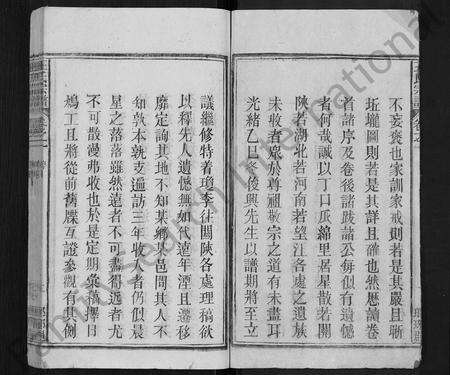 不妄褒也家訓家戒則若是其嚴且晰
坵壠圖則若是其詳且確也然歷讀卷
者諸序及卷後諸跋諸公每似有遺憾
者何哉誠以丁口瓜綿里居星散若開
陝若湖北若河南若望江各處之遺族
未收者眾於尊祖敬宗之道有未盡耳
光緒乙巳年俊興先生以譜期將至立
議繼修特着瓊季往關陝各處理稿欲
以釋先人遺憾無如代遠年湮且遷移
靡定詢其地不知某鄉某邑問其人不
知孰本孰支遍訪三年收入者仍似晨
星之落落雖然遠者不可盡得近者尤
不可散漫弗收也於是定期彙稿擇日
鳩工且將從前舊牒互證參觀有其例